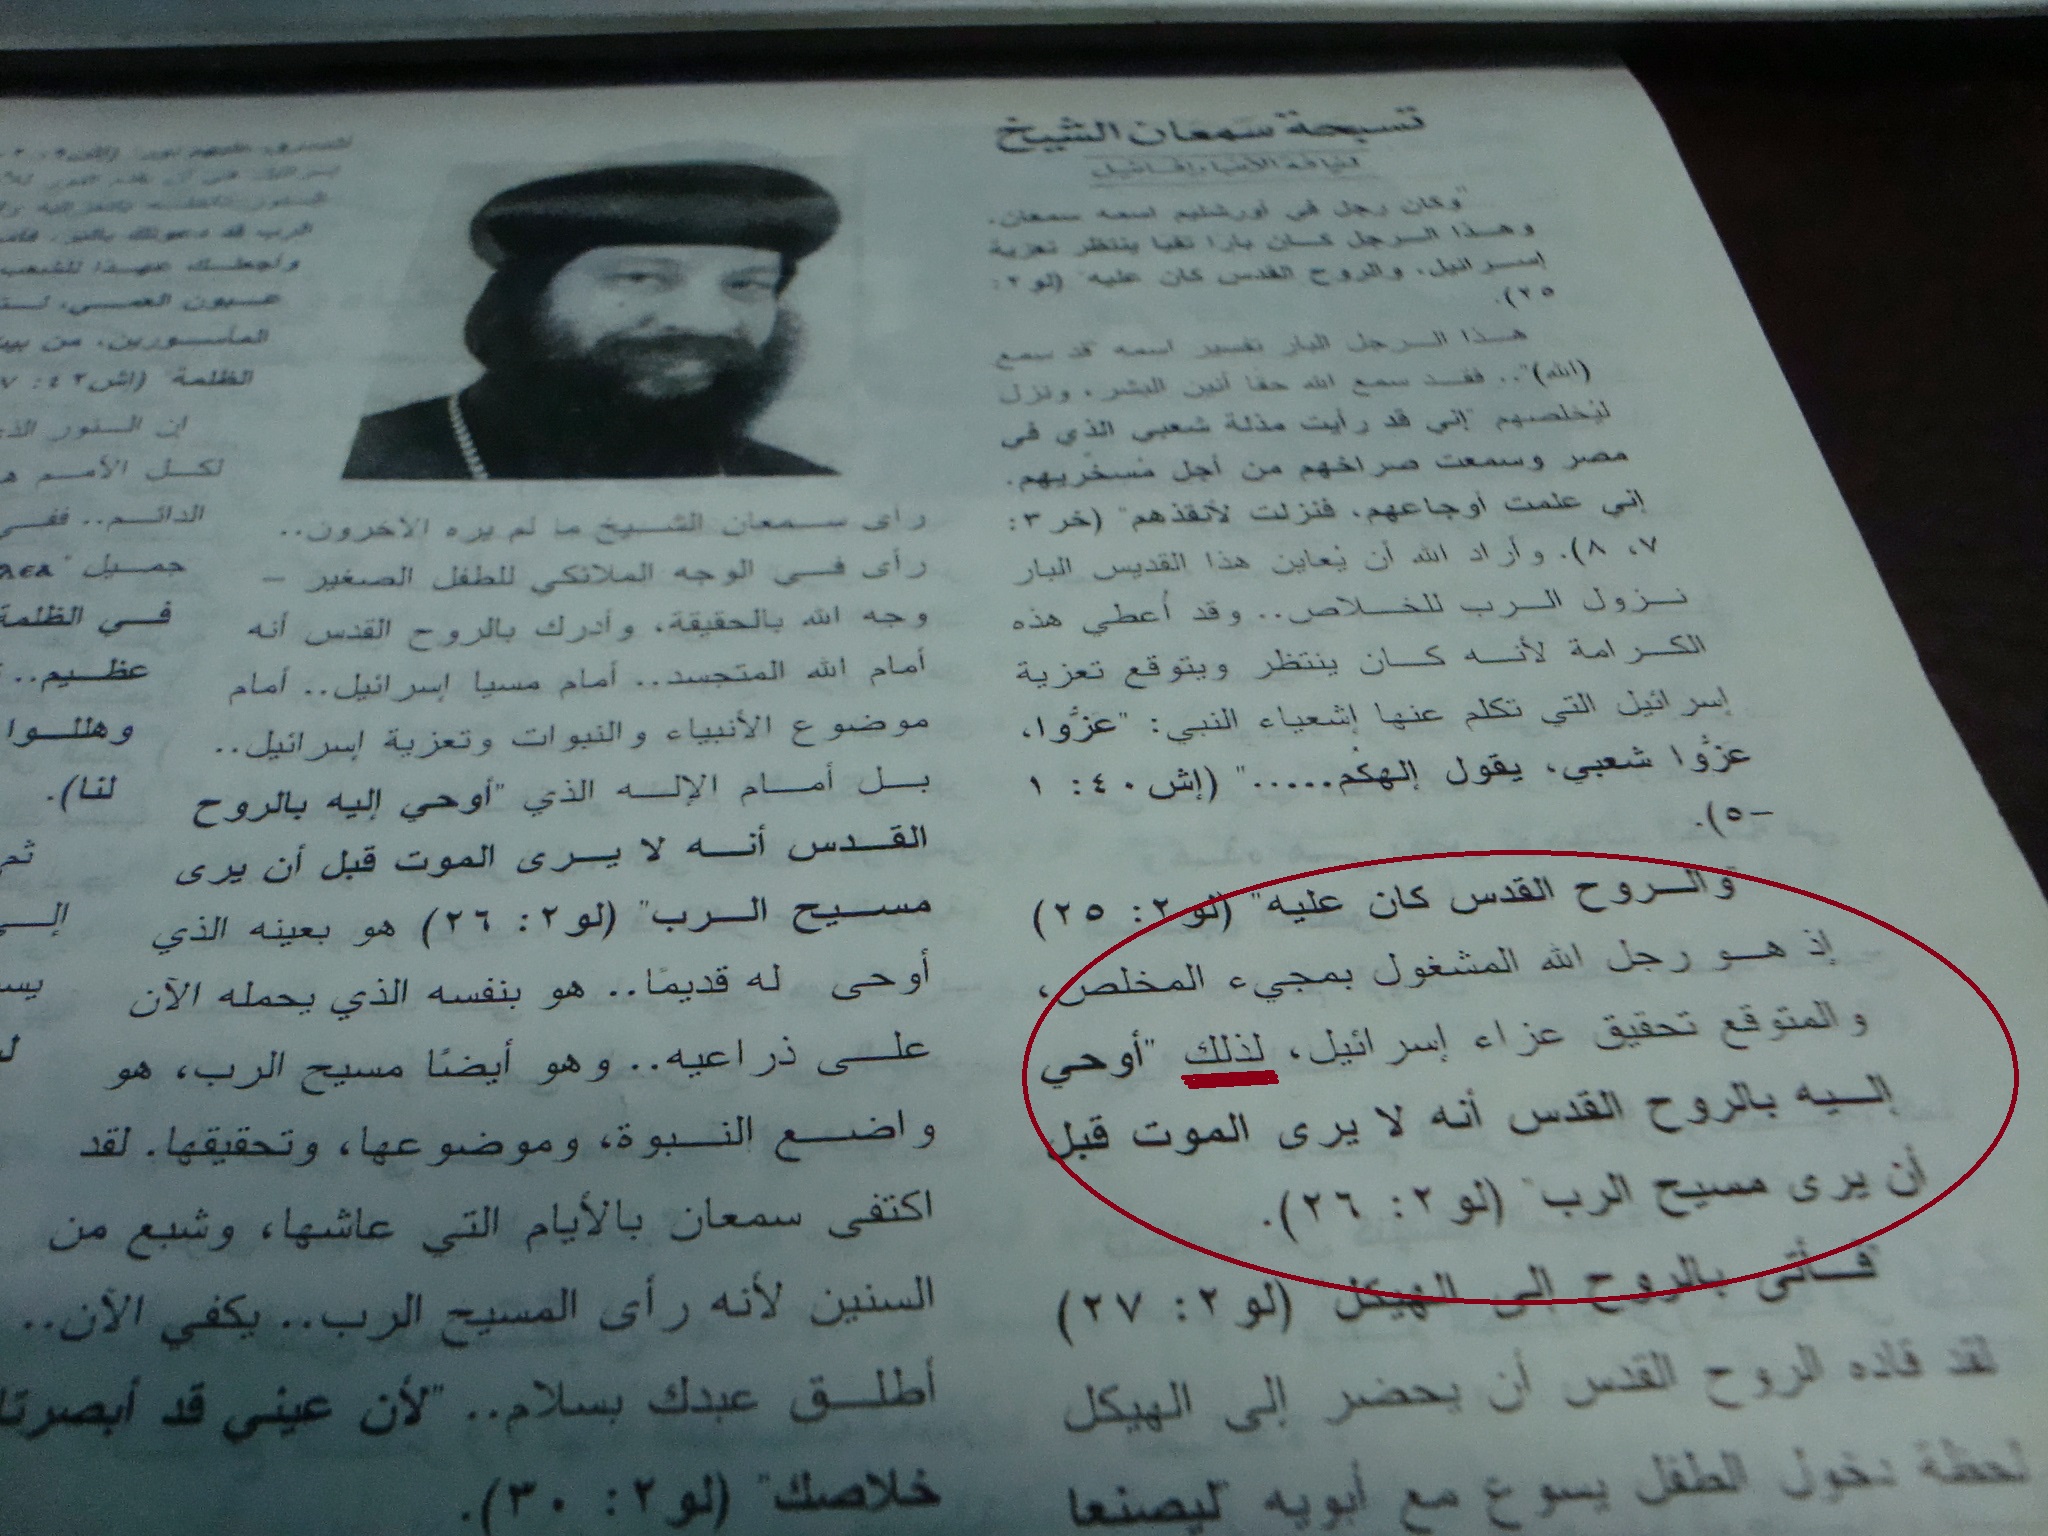 تسبحة سمعان الشيخ
لنيافة الأنبا رافائيل
"وكان رجل في أورشليم اسمه سمعان،
وهذا الرجل كان بارا تقيا ينتظر تعزية
إسرائيل، والروح القدس كان عليه" (لو٢:
٢٥).
هذا الرجل البار تفسير اسمه قد سمع
(الله)".. فقد سمع الله حقا أنين البشر، ونزل
ليُخلصهم "إني قد رأيت مذلة شعبي الذي في
مصر وسمعت صراخهم من أجل مُسخريهم.
إني علمت أوجاعهم، فنزلت لأنقذهم" (خر٣:
٧، ٨). وأراد الله أن يُعاين هذا القديس البار
نزول الرب للخلاص.. وقد أُعطي هذه
الكرامة لأنه كان ينتظر ويتوقع تعزية
إسرائيل التي تكلم عنها إشعياء النبي: "عَزُّوا،
عَزُّوا شعبي، يقول إلهكُم....." (إش٤٠: ١
-٥).
"والروح القدس كان عليه" (لو٢: ٢٥)
إذ هو رجل الله المشغول بمجيء المخلص،
والمتوقع تحقيق عزاء إسرائيل، لذلك "أوحي
إليه بالروح القدس أنه لا يرى الموت قبل
أن يرى مسيح الرب" (لو٢: ٢٦).
"فأتى بالروح إلى الهيكل (لو٢: ٢٧)
لقد قاده الروح القدس أن يحضر إلى الهيكل
لحظة دخول الطفل يسوع مع أبويه "ليصنعا
رأى سمعان الشيخ ما لم يره الآخرون..
رأى في الوجه الملائكي للطفل الصغير –
وجه الله بالحقيقة، وأدرك بالروح القدس أنه
أمام الله المتجسد.. أمام مسيا إسرائيل.. أمام
موضوع الأنبياء والنبوات وتعزية إسرائيل..
بل أمام الإله الذي "أوحي إليه بالروح
القدس أنه لا يرى الموت قبل أن يرى
مسيح الرب" (لو٢: ٢٦) هو بعينه الذي
أوحى له قديمًا.. هو بنفسه الذي يحمله الآن
على ذراعيه.. وهو أيضًا مسيح الرب، هو
واضع النبوة، وموضوعها، وتحقيقها. لقد
اكتفى سمعان بالأيام التي عاشها، وشبع من
السنين لأنه رأى المسيح الرب.. يكفي الآن..
أطلق عبدك بسلام.. "لأن عيني قد أبصرتا
خلاصك" (لو٢: ٣٠).
الرب قد دعوتك بالبر،
وأجعلك عهدا للشعب
عيون العمي،
المأسورين، من
الظلمة" (إش٤٢: ٧
إن النور
لكل الأمم
الدائم..
جميل
في الظلمة
عظيم..
وهللوا
لنا).
ثم